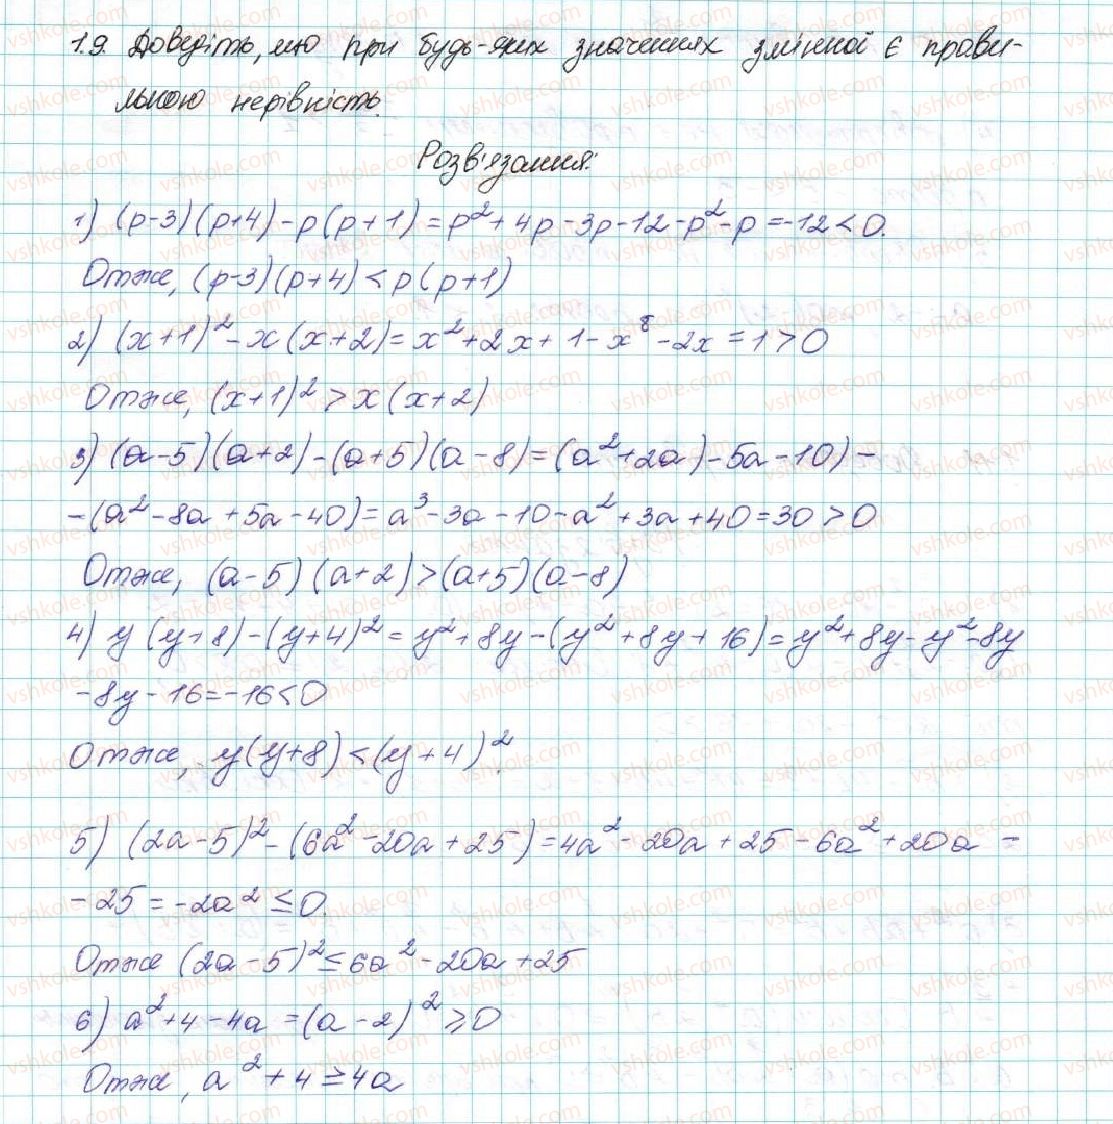 1.9. Доведіть, що при будь-яких значеннях змінної є прави-
льною нерівність.
Розв'язання:
1) (p-3)(p+4)-p(p+1)=p²+4p-3p-12-p²-p=-12<0.
Отже, (p-3)(p+4)<p(p+1)
2) (x+1)²-x(x+2)=x²+2x+1-x⁸-2x=1>0
Отже, (x+1)²>x(x+2)
3) (a-5)(a+2)-(a+5)(a-8)=(a²+2a)-5a-10)-
-(a²-8a+5a-40)=a³-3a-10-a²+3a+40=30>0
Отже, (a-5)(a+2)>(a+5)(a-8)
4) y(y+8)-(y+4)²=y²+8y-(y²+8y+16)=y²+8y-y²-8y
-8y-16=-16<0
Отже, y(y+8)<(y+4)².
5) (2a-5)²-(6a²-20a+25)=4a²-20a+25-6a²+20a-
-25=-2a²≤0.
Отже (2a-5)²≤6a²-20a+25
6) a²+4-4a=(a-2)²≥0
Отже, a²+4≥4a